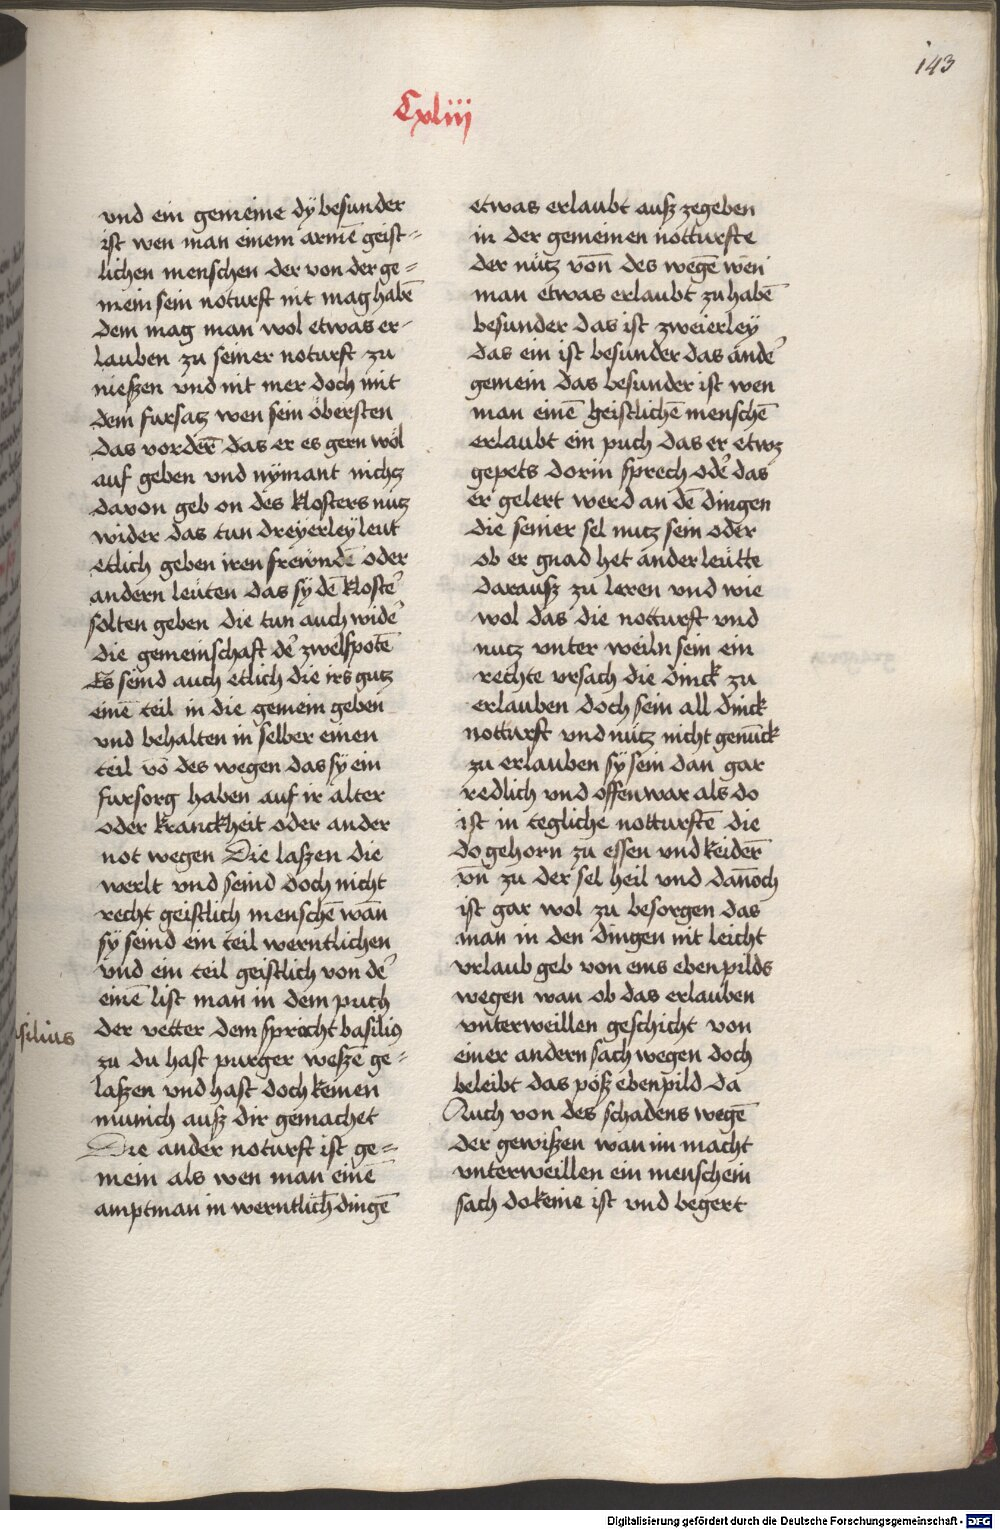 143
Cxliij
vnd ein gemeine dÿ besunder
ist wen man einem armē geist=
lichen menschen der von der ge=
mein sein noturft nit mag habē
dem mag man wol etwas er-
lauben zu seiner noturft zu
nieszen vnd nit mer doch mit
dem fursatz wen sein öbersten
das vorderē das er es gern wöl
auf geben vnd nÿmant nichcz
davon geb on des klosters nutz
wider das tun dreÿerleÿ leut
etlich geben iren freẅndē oder
andern leüten das sÿ dē klosteʾ
solten geben die tun auch wideʾ
die gemeinschaft deʾ zwelfpotē
Es seind auch etlich die irs gutz
einē teil in die gemein geben
vnd behalten in selber einen
teil vō des wegen das sÿ ein
fursorg haben auf ir alter
oder kranckheit oder ander
not wegen Die laszen die
werlt vnd seind doch nicht
recht geistlich menschē wān
sÿ seind ein teil werntlichen
vnd ein teil geistlich von deʾ
einē list man in dem puch
der vetter dem spracht basiliꝰ
silius
zu du hast purger weszē ge=
laszen vnd hast doch keinen
munich ausz dir gemachet
Die ander noturft ist ge=
mein als wen man einē
amptman in werntlichē dingē
etwas erlaubt ausz zegeben
in der gemeinen notturfte
der nutz von des wegē wen
man etwas erlaubt zu habē
besunder das ist zweierleÿ
das ein ist besunder das andeʾ
gemein das besunder ist wen
man einē geistlichē menschē
erlaubt ein puch das er etwz
gepets dorin sprech odeʾ das
er gelert werd an dē dingen
die seiner sel nutz sein oder
ob er gnad het ander leutte
darausz zu leren vnd wie
wol das die notturft vnd
nutz vnter weiln sein ein
rechte vrsach die dinck zu
erlauben doch sein all dinck
notturft vnd nütz nicht genūck
zu erlauben sÿ sein dan gar
redlich vnd offenwar als do
ist in tegliche notturftē die
do gehorn zu essen vnd keiderē
vn̄ zu der sel heil vnd dānoch
ist gar wol zu besorgen das
man in den dingen nit leicht
vrlaub geb von eins ebenpilds
wegen wan ob das erlauben
vnterweillen geschicht von
einer andern sach wegen doch
beleibt das pösz ebenpild da
Auch von des schadens wegē
der gewiszen wan im macht
vnterweillen ein menschein
sach do keine ist vnd begert
Digitalisierung gefördert durch die Deutsche Forschungsgemeinschaft - DFG